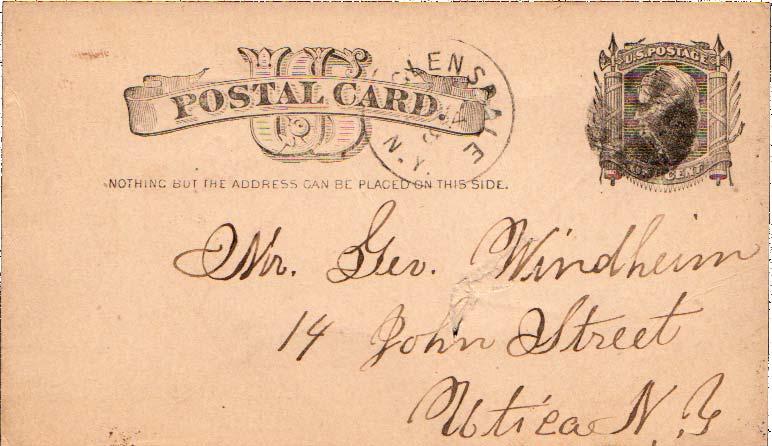 U.S. POSTAGE
POSTAL CARD.
ONE CENT
CKENSDALE
N.Y.
NOTHING BUT THE ADDRESS CAN BE PLACED ON THIS SIDE.
Mr. Geo. Windheim
14 John Street
Utica N. Y